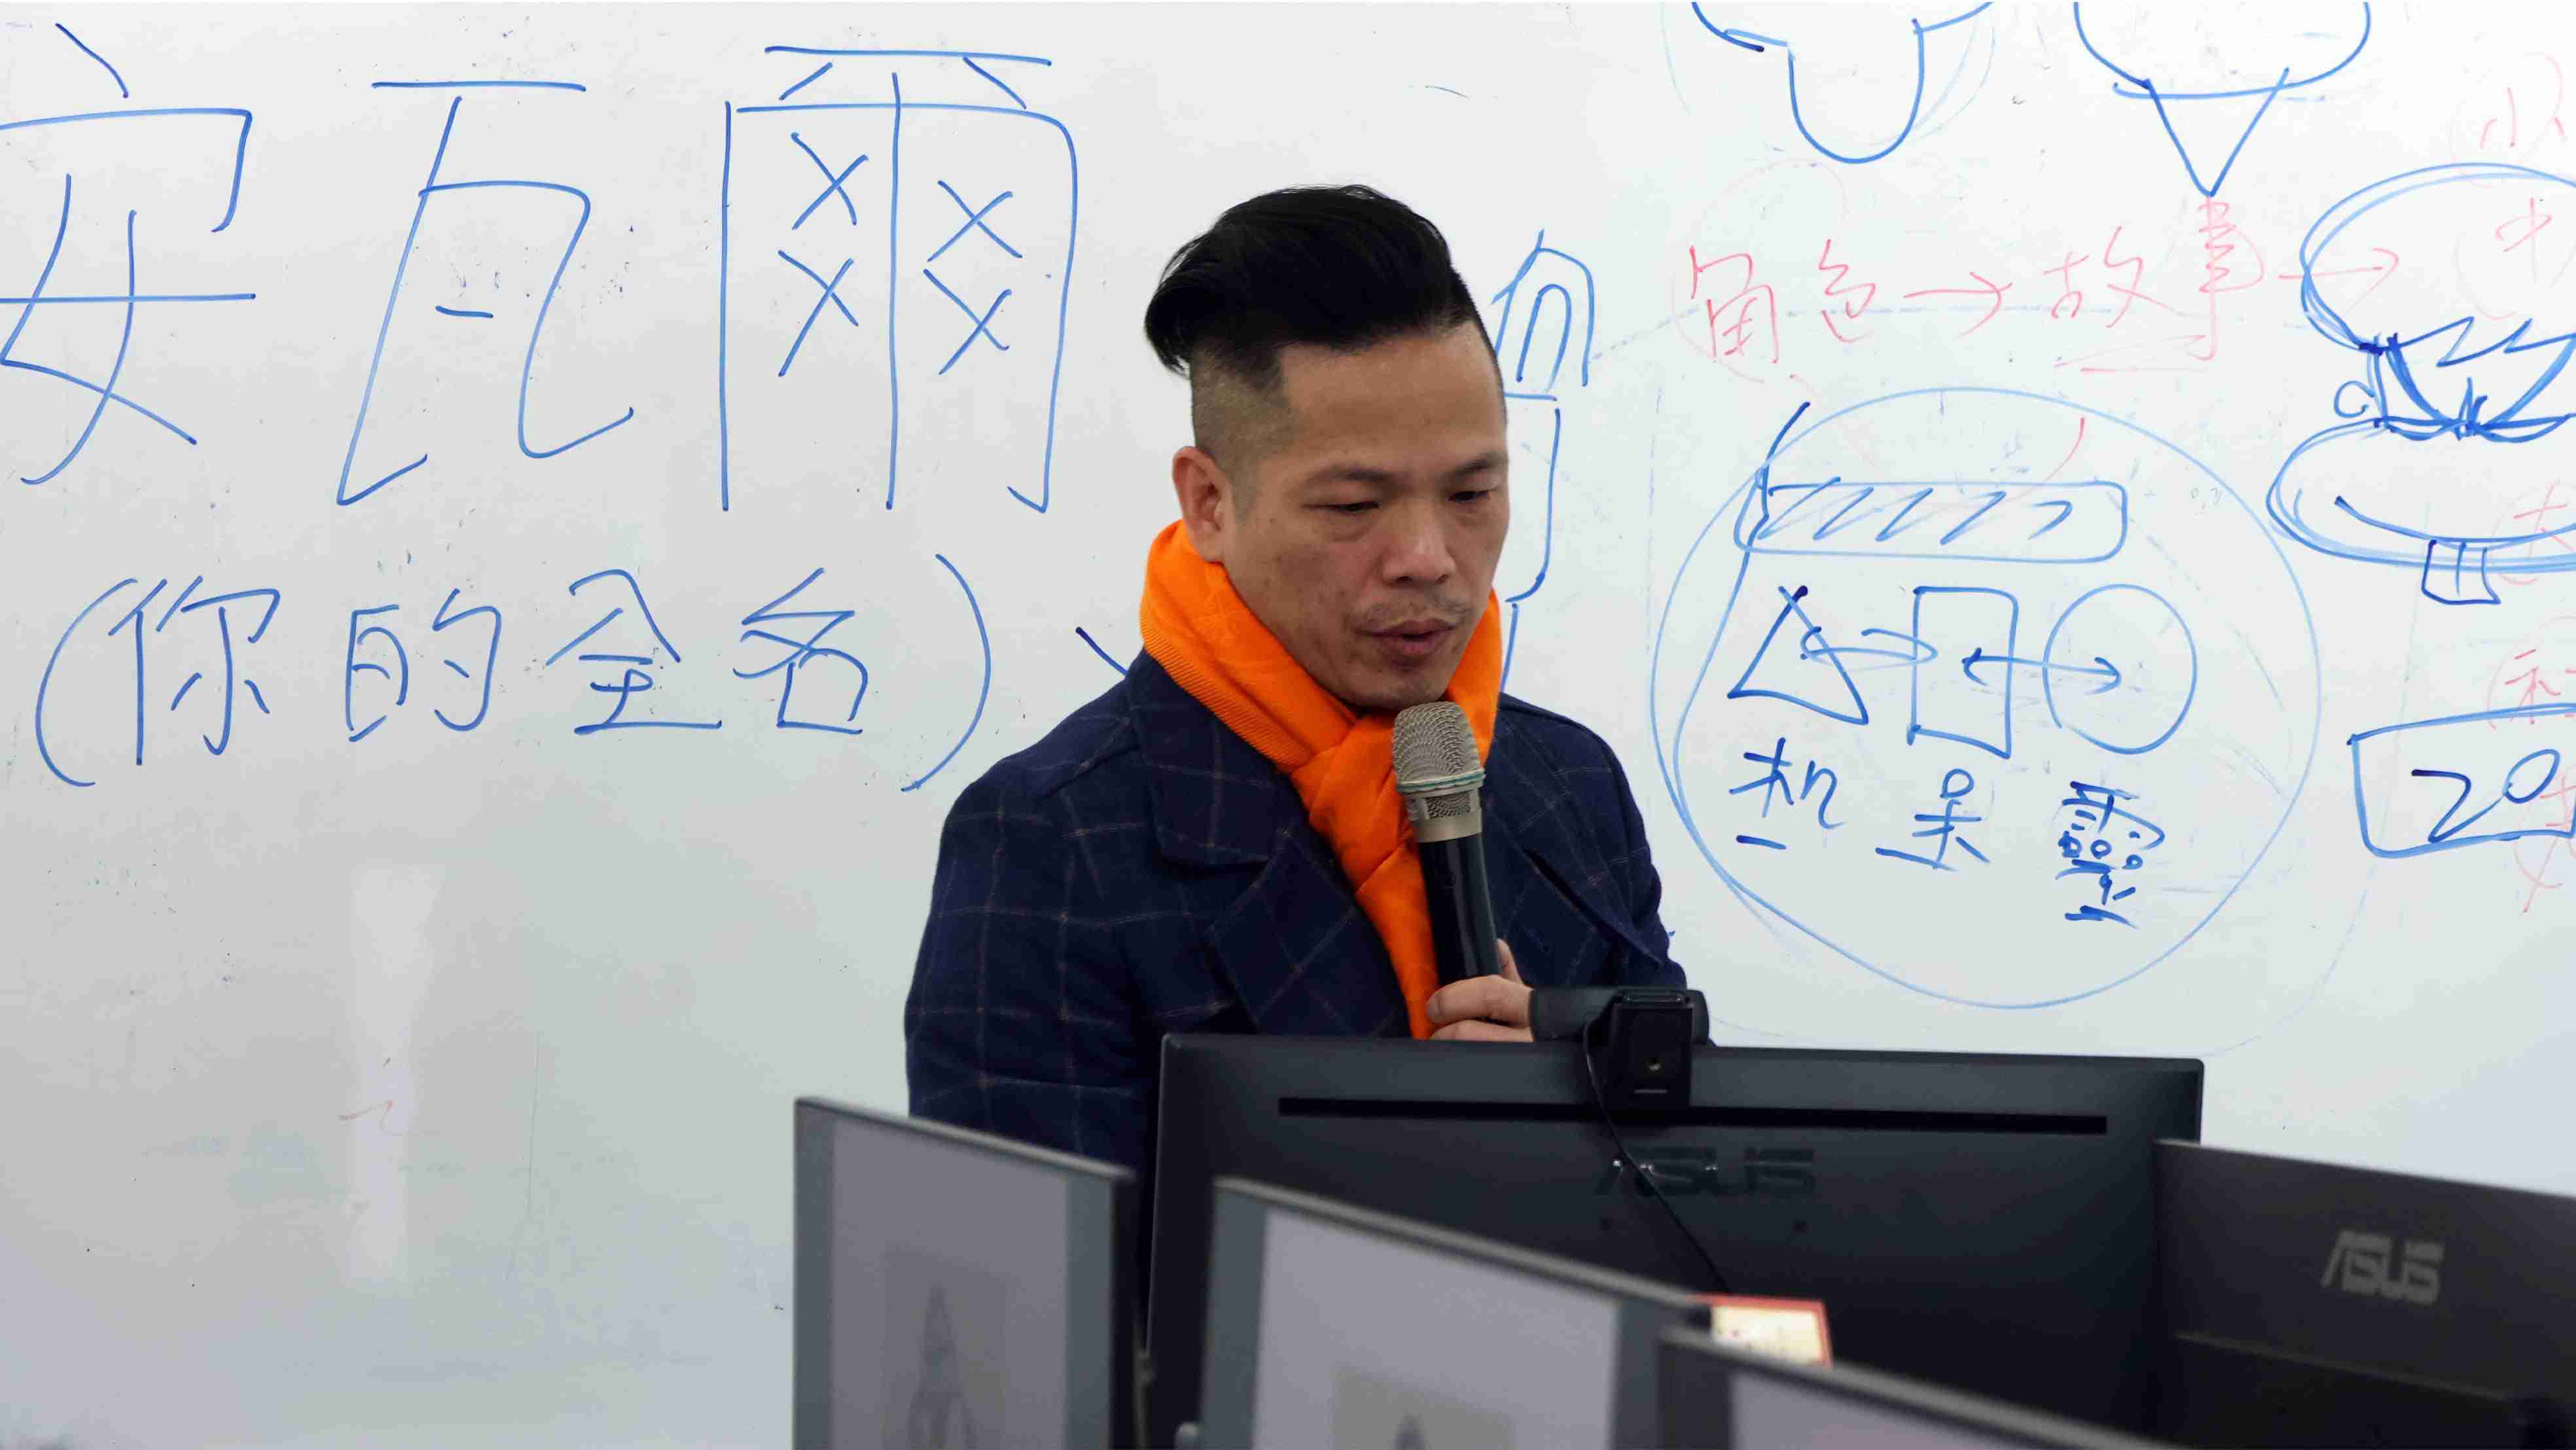 安瓦爾
(你的全名)
角色→故事→
机 呆 靈
20
ASUS
ASUS